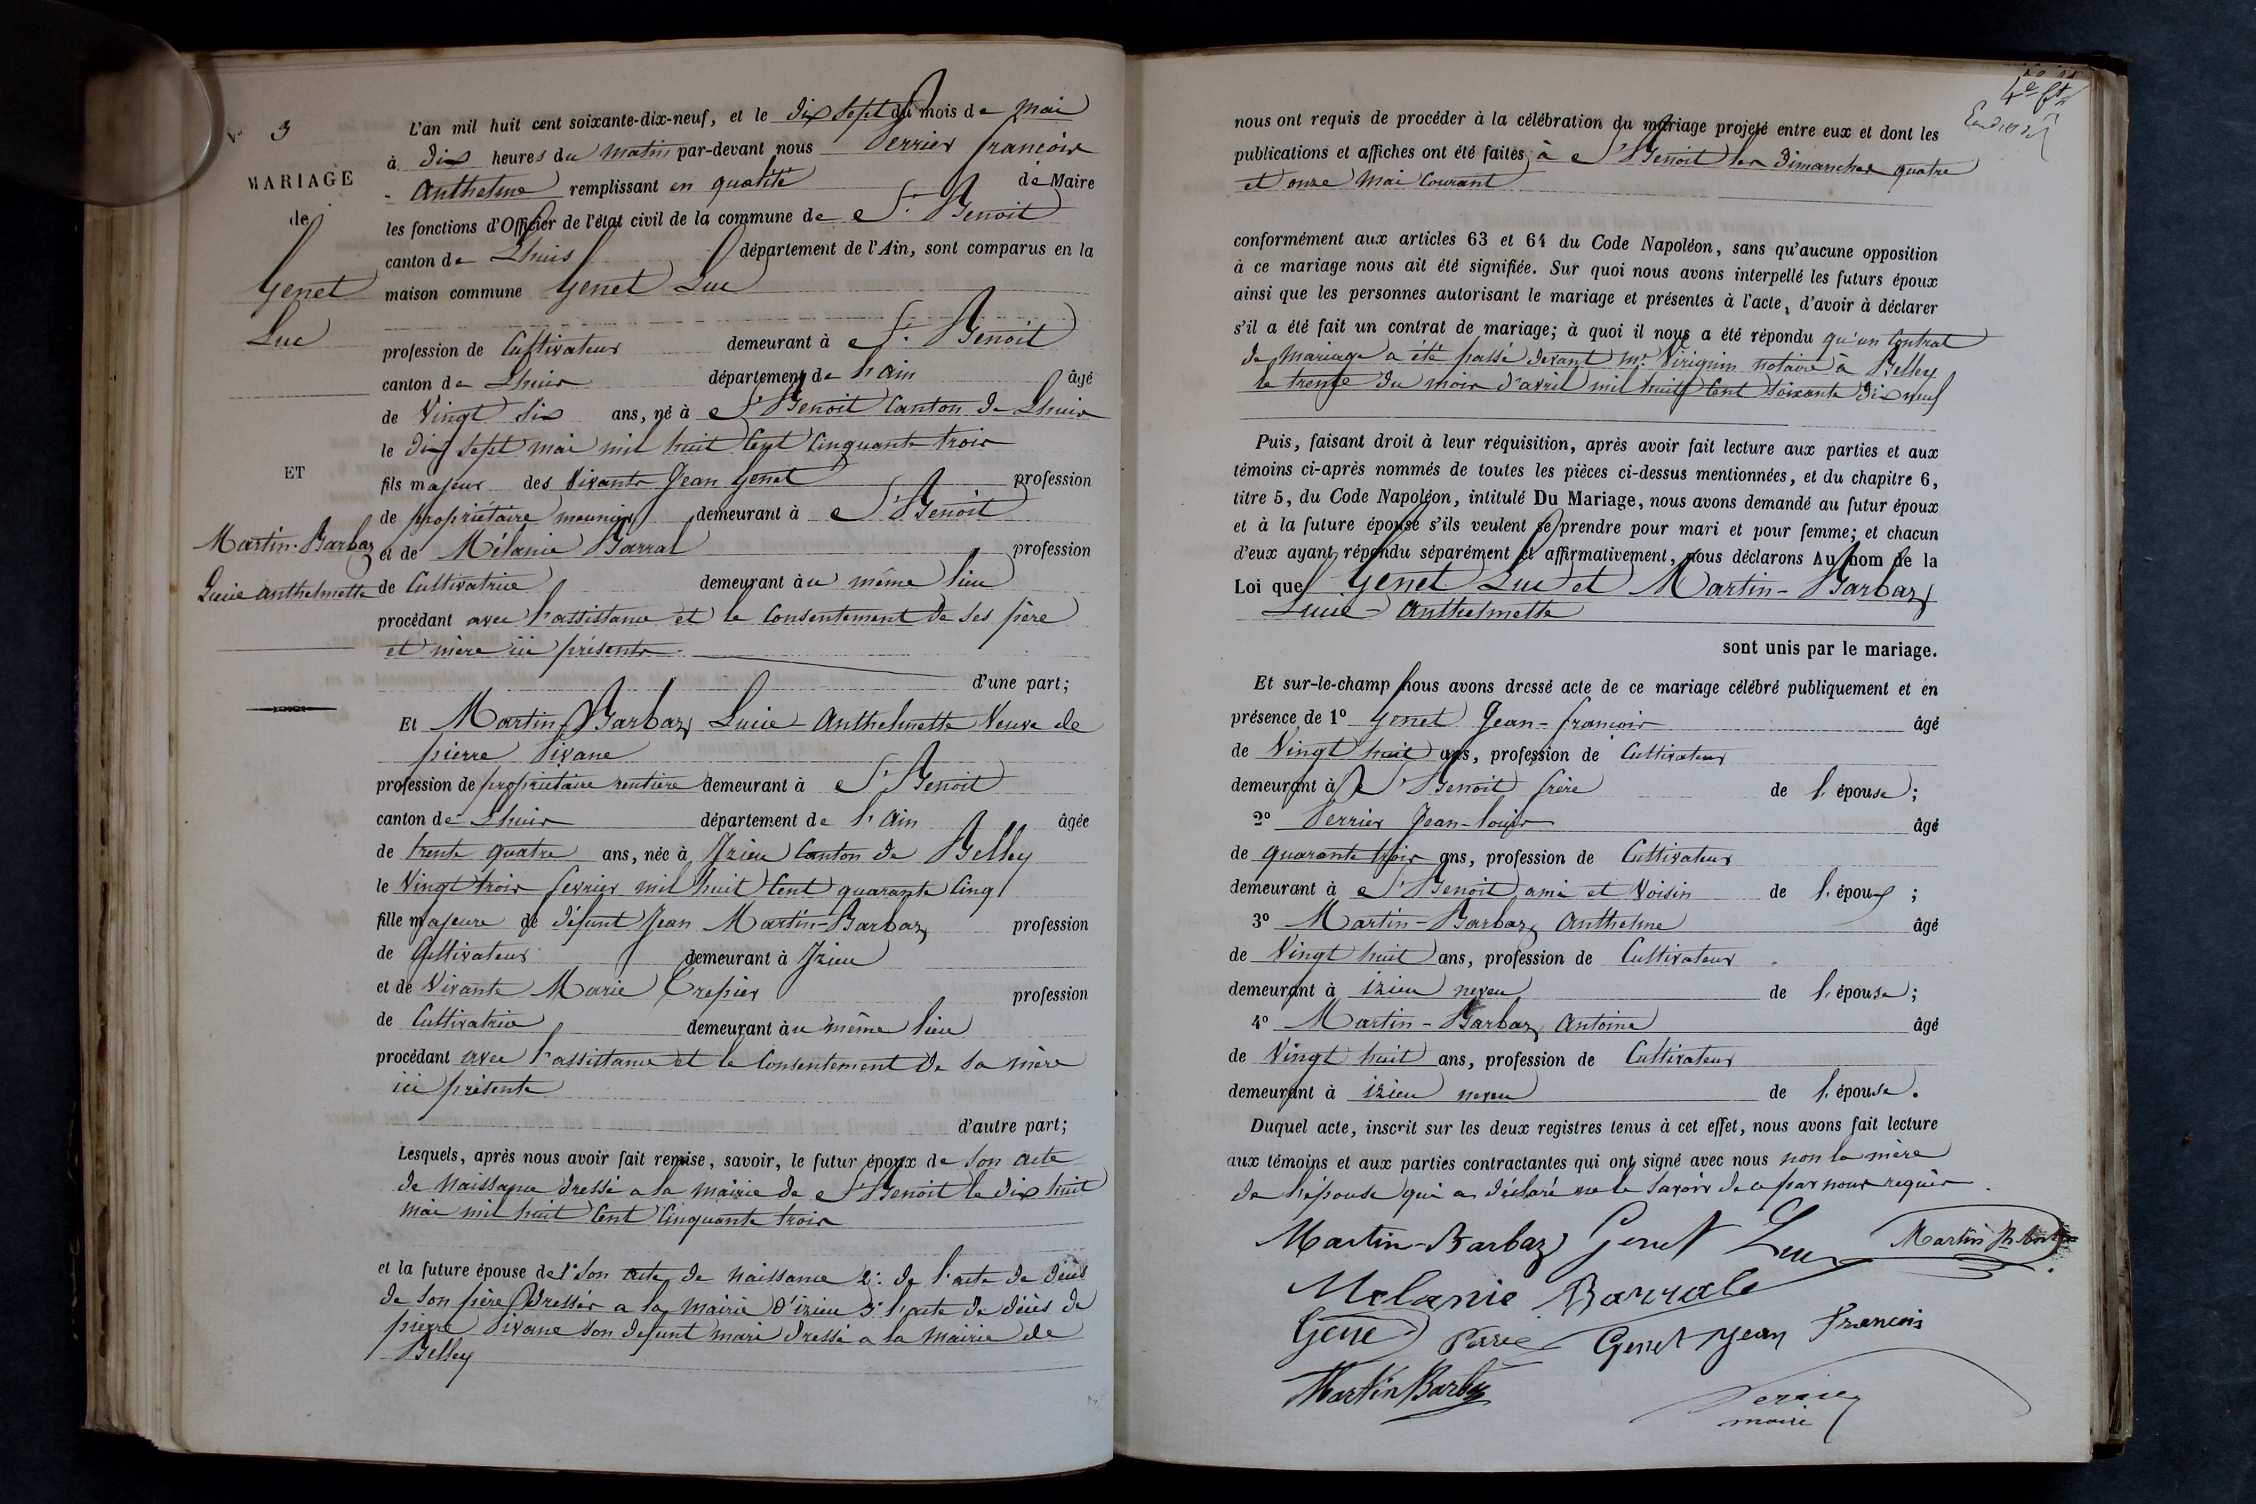 3
MARIAGE
de
Genet
Luc
ET
Martin-Barbaz
Lucie Anthelmette
L'an mil huit cent soixante-dix-neuf, et le dix sept du mois de Mai
à dix heures du Matin par-devant nous Perrier francois
Anthelme remplissant en qualité de Maire
les fonctions d'Officier de l'état civil de la commune de St Benoit
canton de Lhuis département de l'Ain, sont comparus en la
maison commune Genet Luc
profession de Cultivateur demeurant à St Benoit
canton de Lhuis département de l'ain âgé
de Vingt six ans, né à St Benoit Canton de Lhuis
le dix sept mai mil huit Cent Cinquante trois
fils majeur des Vivants Jean Genet profession
de propriétaire meunier demeurant à St Benoit
et de Mélanie Barral profession
de Cultivatrice demeurant àu même lieu
procédant avec l'assistance et le Consentement de ses père
et mère ici présents
d'une part;
Et Martin Barbaz Lucie Anthelmette Veuve de
pierre Pivane
profession de propriétaire rentière demeurant à St Benoit
canton de Lhuis département de l'Ain âgée
de trente quatre ans, née à Izieu Canton de Belley
le Vingt trois fevrier mil huit Cent quarante Cinq
fille majeure de défunt Jean Martin-Barbaz profession
de Cultivateur demeurant à Izieu
et de Vivante Marie Crepier profession
de Cultivatrice demeurant àu même lieu
procédant avec l'assistance et le Consentement de sa mère
ici présente
d'autre part;
Lesquels, après nous avoir fait remise, savoir, le futur époux de son acte
de Naissance dressé a la mairie de St Benoit le dix huit
mai mil huit Cent Cinquante trois
et la future épouse de 1° son acte de naissance 2° de l'acte de décès
de son père dressés a la mairie d'izieu 3° l'acte de décès de
pierre Pivane son defunt mari dressé a la mairie de
Belley
nous ont requis de procéder à la célébration du mariage projeté entre eux et dont les
publications et affiches ont été faites, à St Benoit les Dimanches quatre
et onze Mai Courant
conformément aux articles 63 et 64 du Code Napoléon, sans qu'aucune opposition
à ce mariage nous ait été signifiée. Sur quoi nous avons interpellé les futurs époux
ainsi que les personnes autorisant le mariage et présentes à l'acte, d'avoir à déclarer
s'il a été fait un contrat de mariage; à quoi il nous a été répondu qu'un Contrat
de Mariage a été passé devant Me Virignin notaire à Belley
le trente du mois d'avril mil huit Cent soixante dix neuf
Puis, faisant droit à leur réquisition, après avoir fait lecture aux parties et aux
témoins ci-après nommés de toutes les pièces ci-dessus mentionnées, et du chapitre 6,
titre 5, du Code Napoléon, intitulé Du Mariage, nous avons demandé au futur époux
et à la future épouse s'ils veulent se prendre pour mari et pour femme; et chacun
d'eux ayant répondu séparément et affirmativement, nous déclarons Au nom de la
Loi que Genet Luc et Martin-Barbaz
Lucie Anthelmette
sont unis par le mariage.
Et sur-le-champ nous avons dressé acte de ce mariage célébré publiquement et en
présence de 1° Genet Jean-francois âgé
de Vingt huit ans, profession de Cultivateur
demeurant à St Benoit frère de l'épouse;
2° Perrier Jean-louis âgé
de quarante trois ans, profession de Cultivateur
demeurant à St Benoit ami et Voisin de l'époux;
3° Martin-Barbaz Anthelme âgé
de Vingt huit ans, profession de Cultivateur
demeurant à izieu neveu de l'épouse;
4° Martin-Barbaz Antoine âgé
de Vingt huit ans, profession de Cultivateur
demeurant à izieu neveu de l'épouse.
Duquel acte, inscrit sur les deux registres tenus à cet effet, nous avons fait lecture
aux témoins et aux parties contractantes qui ont signé avec nous non la mère
de l'épouse qui a déclaré ne le savoir de ce par nous requis
Martin-Barbaz Genet Luc Martin
Melanie Barrale
Genet Perrier Genet Jean Francois
Martin Barbaz
Perrier
maire